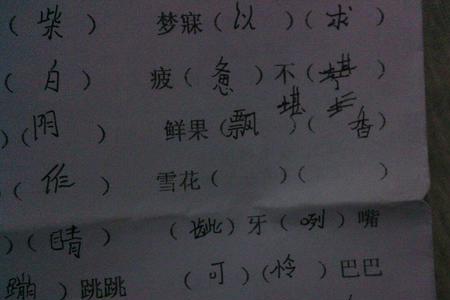 （柴） 梦寐（以）（求）
（白） 疲（惫）不（ ）
堪
）（阴） 鲜果（飘）（香）
（ ） 雪花（ ）（ ）
）（睛） （龇）牙（咧）嘴
蹦）跳跳 （可）（怜）巴巴